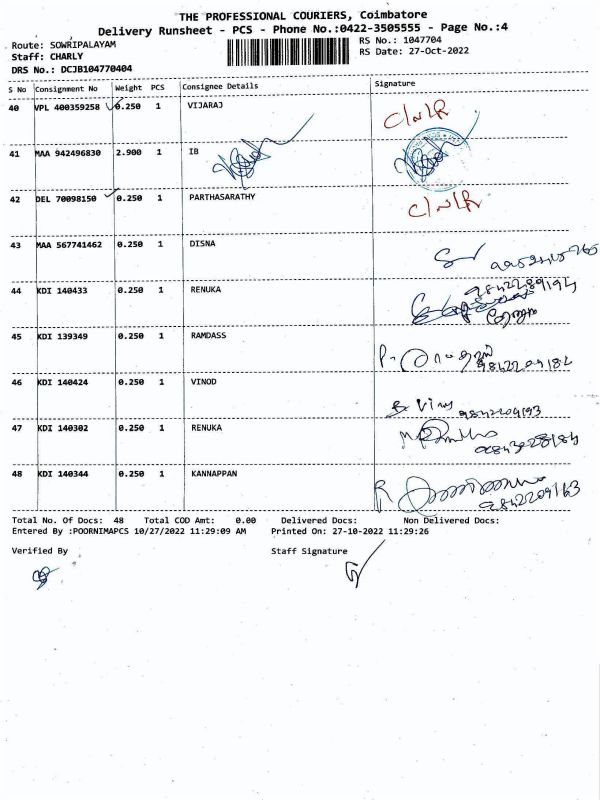 THE PROFESSIONAL COURIERS, Coimbatore
Delivery Runsheet - PCS - Phone No.:0422-3505555 - Page No.:4
Route: SOWRIPALAYAM RS No.: 1047704
Staff: CHARLY RS Date: 27-Oct-2022
DRS No.: DCJB104770404
S No Consignment No Weight PCS Consignee Details Signature
40 VPL 400359258 0.250 1 VIJARAJ
41 MAA 942496830 2.900 1 IB
42 DEL 70098150 0.250 1 PARTHASARATHY
43 MAA 567741462 0.250 1 DISNA
44 KDI 140433 0.250 1 RENUKA
45 KDI 139349 0.250 1 RAMDASS
9842204182
46 KDI 140424 0.250 1 VINOD
9842204193
47 KDI 140302 0.250 1 RENUKA
48 KDI 140344 0.250 1 KANNAPPAN
9842209163
Total No. Of Docs: 48 Total COD Amt: 0.00 Delivered Docs: Non Delivered Docs:
Entered By :POORNIMAPCS 10/27/2022 11:29:09 AM Printed On: 27-10-2022 11:29:26
Verified By Staff Signature